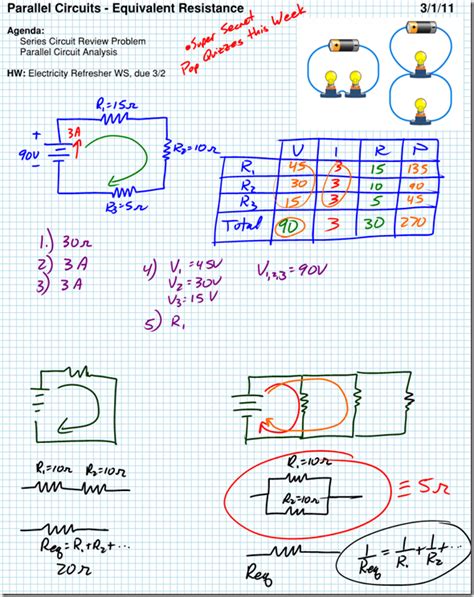 Parallel Circuits - Equivalent Resistance 3/1/11
Agenda:
Series Circuit Review Problem
Parallel Circuit Analysis
HW: Electricity Refresher WS, due 3/2
•Super Secret
Pop Quizzes this Week
R₁=15Ω
+
3A
90V
-
R₂=10Ω
R₃=5Ω
V I R P
R₁ 45 3 15 135
R₂ 30 3 10 90
R₃ 15 3 5 45
Total 90 3 30 270
1.) 30Ω
2) 3A
3) 3A
4) V₁=45V
V₂=30V
V₃=15V
V₁,₂,₃=90V
5) R₁
R₁=10Ω R₂=10Ω
Req=R₁+R₂+...
20Ω
R₁=10Ω
R₂=10Ω
≡5Ω
Req
1/Req = 1/R₁ + 1/R₂ + ...